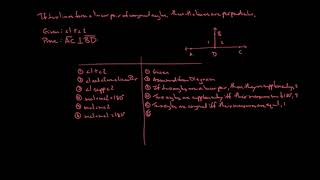 If two lines form a linear pair of congruent angles, then the lines are perpendicular.
Given: ∠1 ≅ ∠2
Prove: AC ⊥ BD
B
1 2
A D C
① ∠1 ≅ ∠2 ① Given
② ∠1 and ∠2 are a linear Pair ② Assumed from Diagram
③ ∠1 supp ∠2 ③ If two angles are a linear pair, then they are supplementary
④ m∠1 + m∠2 = 180° ④ Two angles are supplementary iff their measures sum to 180°
⑤ m∠1 = m∠2 ⑤ Two angles are congruent iff their measures are equal, 1
⑥ m∠1 + m∠1 = 180° ⑥